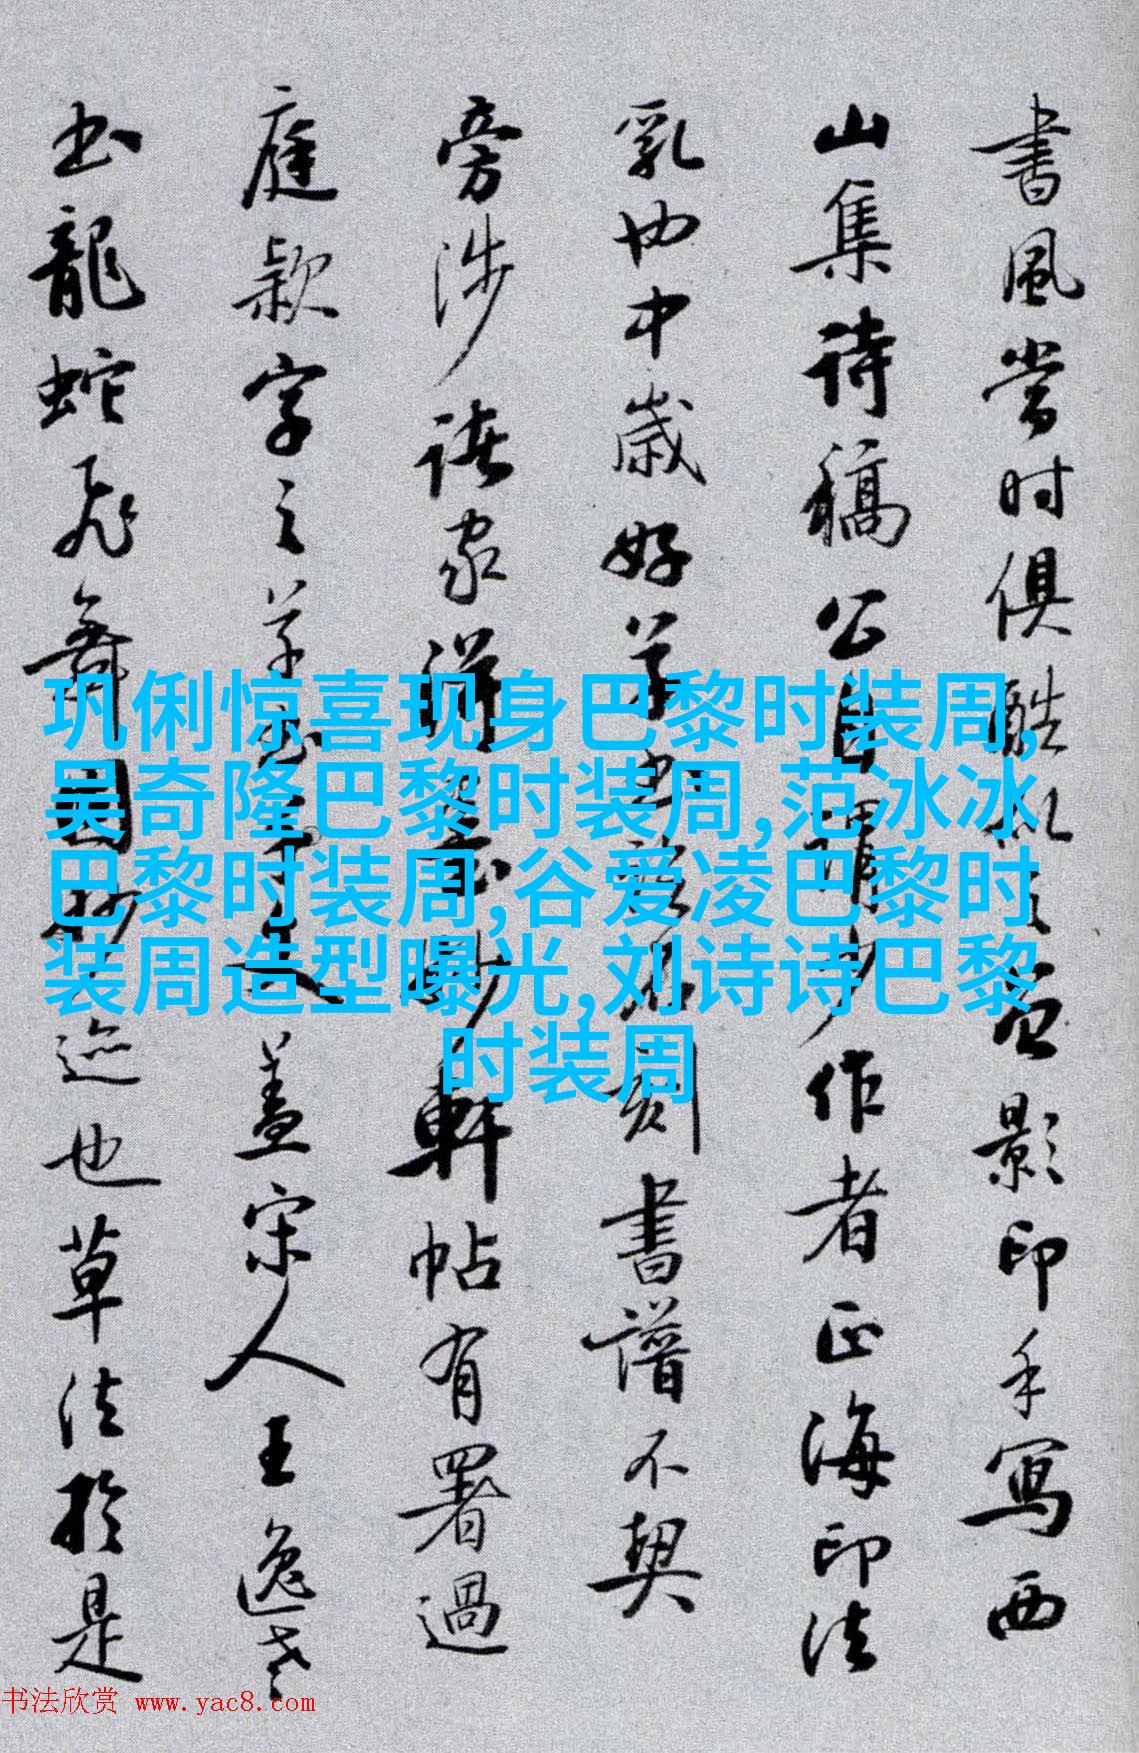 書風當时俱酷似
影印手写西
山集诗稿公自謂少作者正海印法
乳 中歲好草 刻書譜不契
旁涉諸家 軒帖有署過
庭款字之草書 人蓋宋人王逸老
书龍蛇飛舞 迹也草法於是
巩俐惊喜现身巴黎时装周,
吴奇隆巴黎时装周,范冰冰
巴黎时装周,谷爱凌巴黎时
装周造型曝光,刘诗诗巴黎
时装周
书法欣赏 www.yac8.com